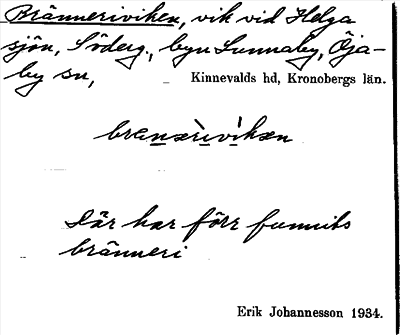 Bränneriviken, vik vid Helga
sjön, Söderg., byn Lunnaby, Öja-
by sn,
Kinnevalds hd, Kronobergs län.
brænæriviken
Där har förr funnits
bränneri
Erik Johannesson 1934.